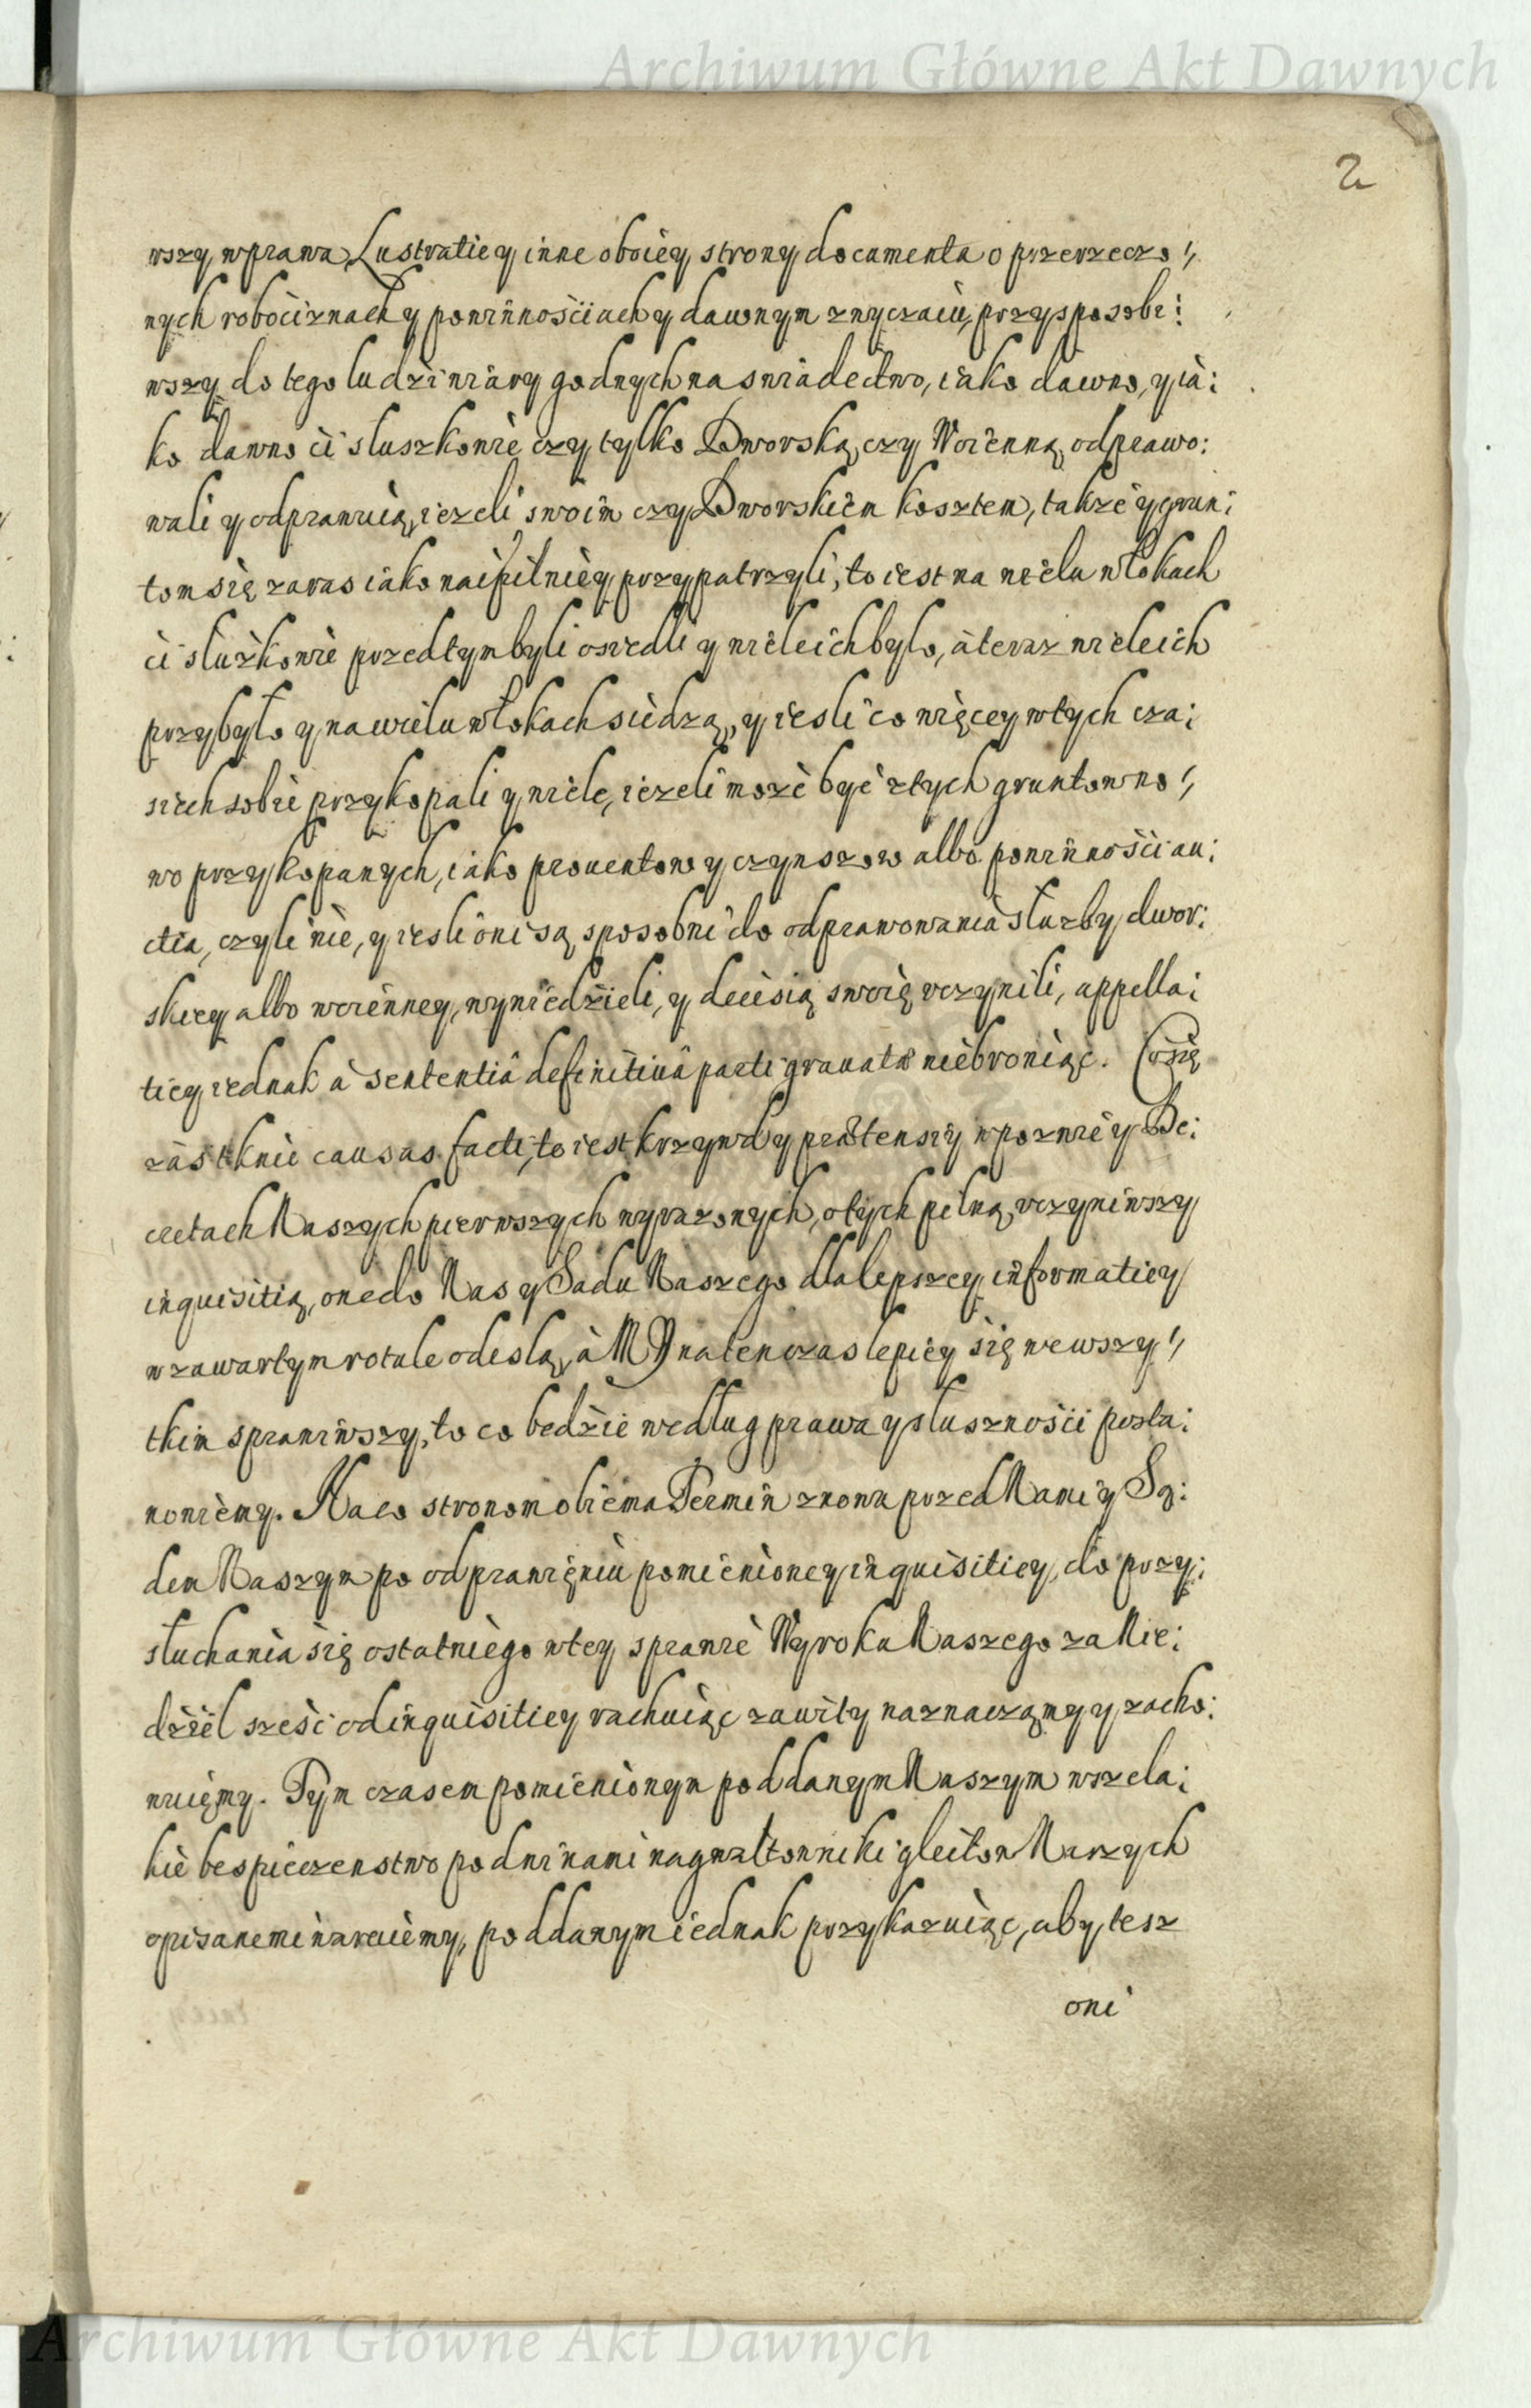 Archiwum Główne Akt Dawnych
2
wszy w prawa, Lustratie y inne oboiey strony documenta o przerzeczo:
nych robociznach y powinnosciach y dawnym zwyczaiu, przysposobi:
wszy do tego ludzi wiary godnych na swiadectwo, iako dawno, y ia:
ko dawno ci sluszkowie czy tylko Dworską, czy Woienną odprawo:
wali y odprawuią, iezeli swoim czy Dworskiem kosztem, takze y grun:
tom się zaras iako naipilniey przypatrzyli, to iest na wielu włokach
ci służkowie przedtym byli osiedli y wiele ich bylo, a teraz wiele ich
przybyło y na wielu włokach siedzą, y iesli co więcey w tych cza:
siech sobie przykopali y wiele, iezeli może być z tych gruntow no:
wo przykopanych, iako prouentow y czynszow albo powinności au:
ctia, czyli nie, y iesli oni są sposobni do odprawowania służby dwor:
skiey albo woienney, wyniedzieli, y decisią swoię vczynili, appella:
tiey iednak a sententiâ definitiuâ parti grauatæ niebroniąc. Co się
zaś tknie causas facti, to iest krzywdy prætensiy w pozwie y De:
cretach Naszych pierwszych wyrazonych, o tych pelną vczyniwszy
inquisitią, one do Nas y Sądu Naszego dla lepszey informatiey
w zawartym rotule odeslą, à MY na ten czas lepiey się we wszy:
tkim sprawiwszy, to co bedzie według prawa y sluszności posta:
nowiemy. Na co stronom obiema Termin znowu przed Nami y Są:
dem Naszym po odprawięniu pomienioney inquisitiey, do przy:
słuchania się ostatniego w tey sprawie Wyroku Naszego za Nie:
dziel sześć od inquisitiey rachuiąc zawity naznaczamy y zacho:
wuięmy. Tym czasem pomienionym poddanym Naszym wszela:
kie bespieczenstwo pod winami na gwaltowniki gleitow Naszych
opisanemi warciemy, poddanym iednak przykazuiąc, aby tesz
oni
Archiwum Główne Akt Dawnych